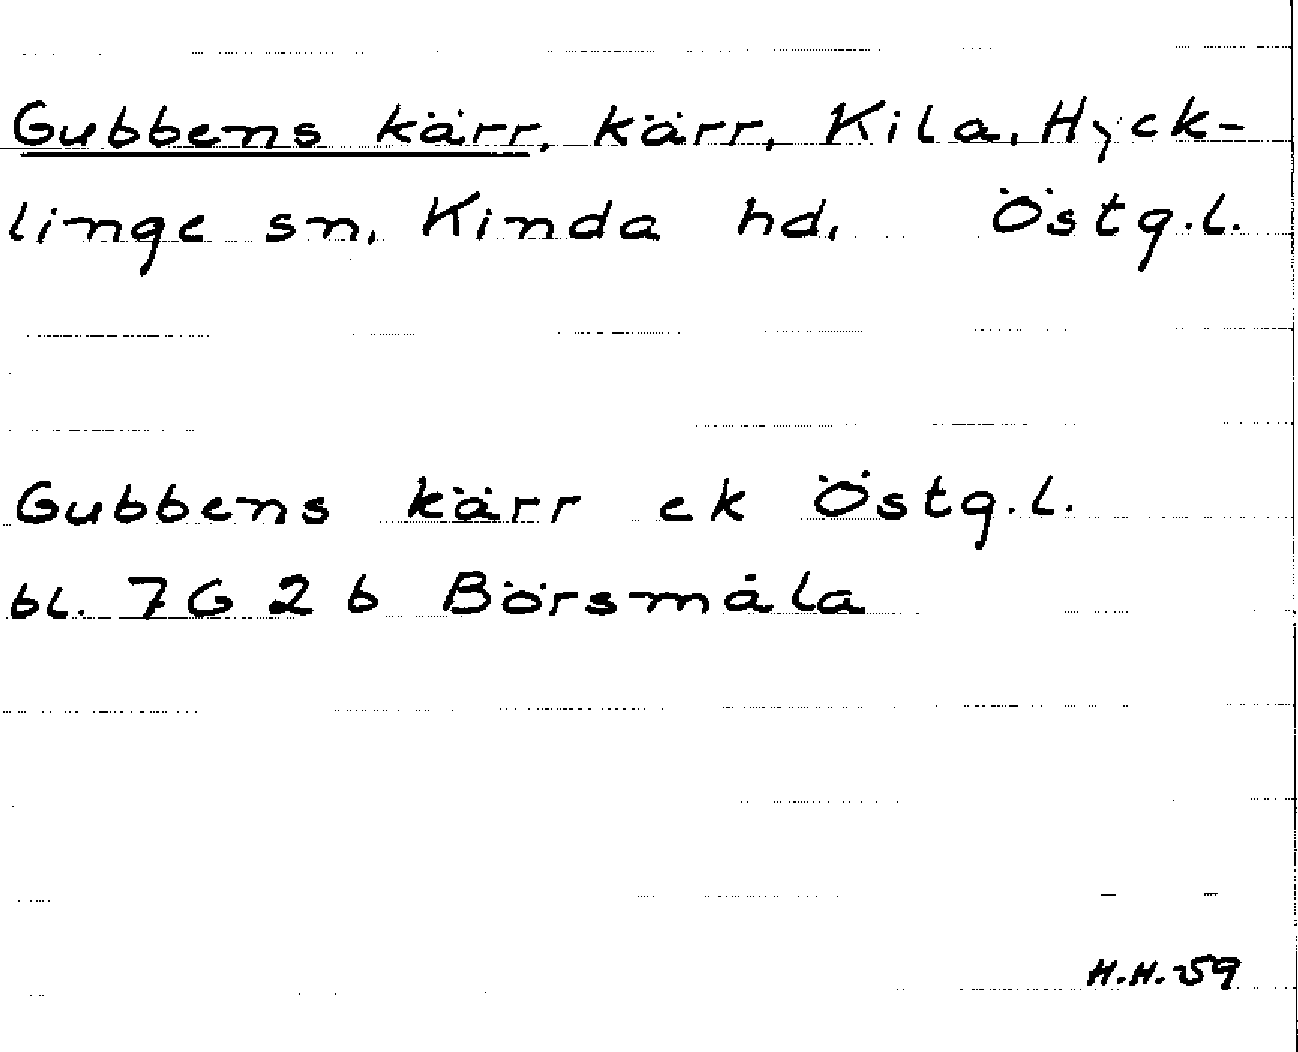 Gubbens kärr, kärr, Kila, Hyck-
linge sn, Kinda hd, Östg.l.
Gubbens kärr ek Östg.l.
bl. 7G 2 b Börsmåla
H.H.59